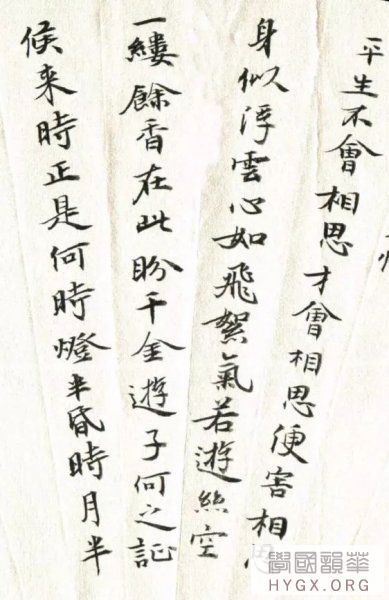 平生不會相思才會相思便害相
身似浮雲心如飛絮氣若遊絲空
一縷餘香在此盼千金遊子何之証
候来時正是何時燈半昏時月半
華韻國學
HYGX.ORG